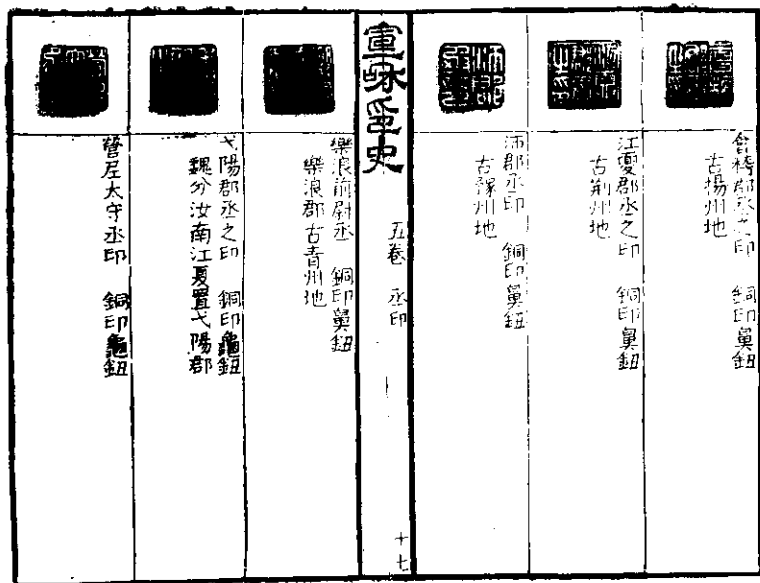 會稽郡丞之印 銅印鼻鈕
古揚州地
江夏郡丞之印 銅印鼻鈕
古荊州地
沛郡丞印 銅印鼻鈕
古豫州地
宣和印史 五卷 丞印 十七
樂浪前尉丞 銅印鼻鈕
樂浪郡古青州地
弋陽郡丞之印 銅印龜鈕
魏分汝南江夏置弋陽郡
太守丞印 銅印龜鈕